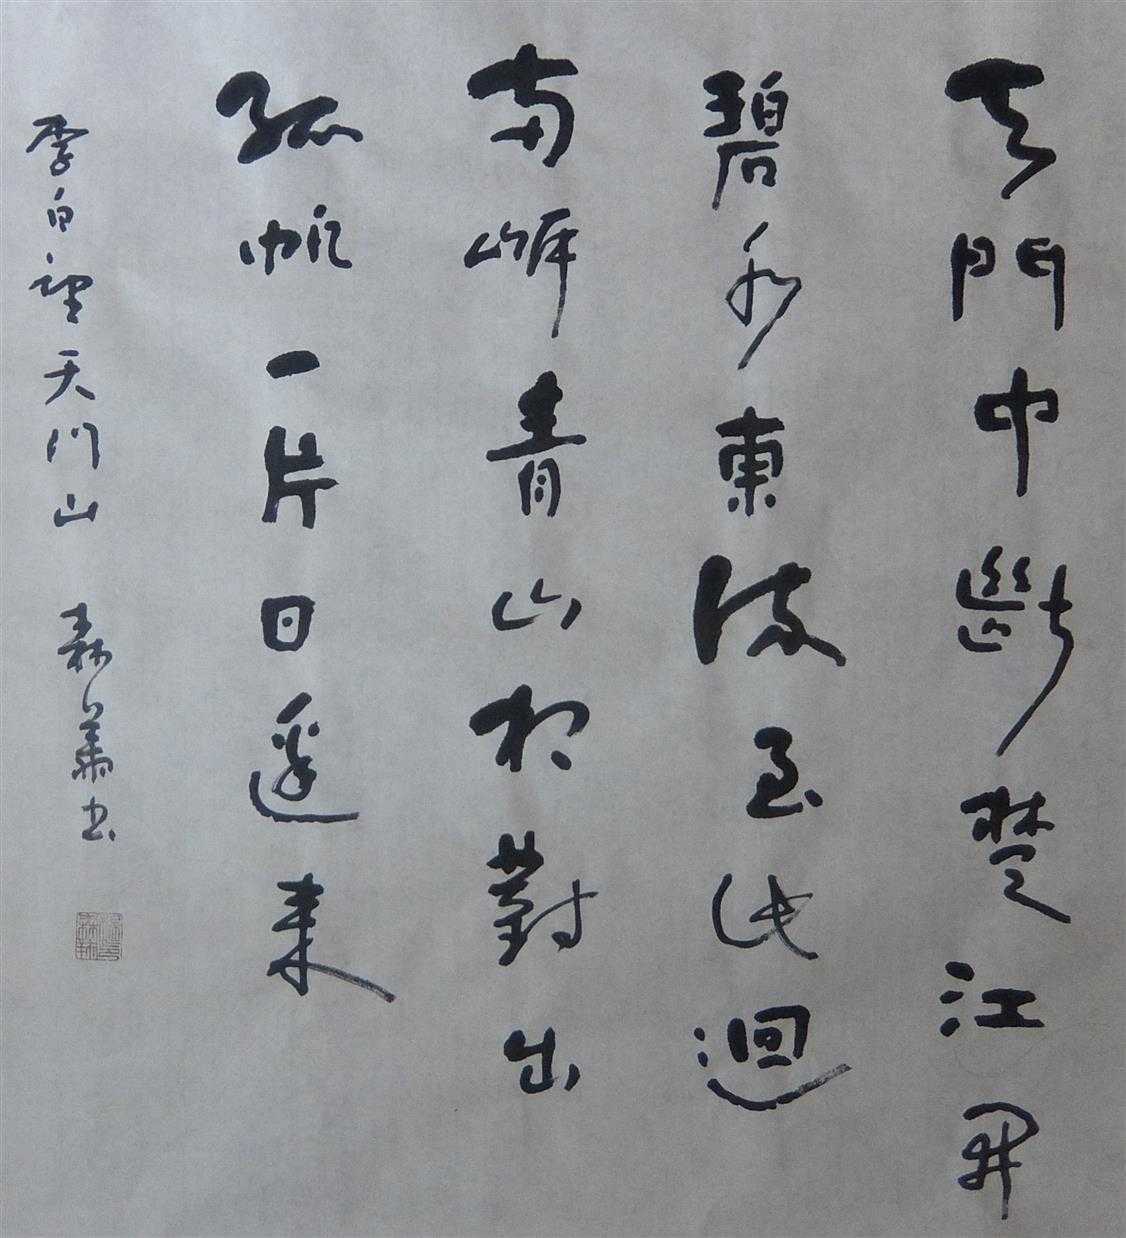 天門中斷楚江開
碧水東流至此迴
兩岸青山相對出
孤帆一片日邊来
李白望天门山 森華书